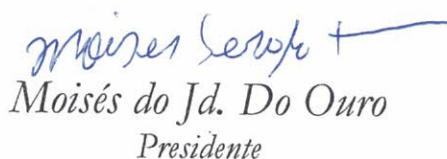 Moisés do Jd. Do Ouro
Presidente